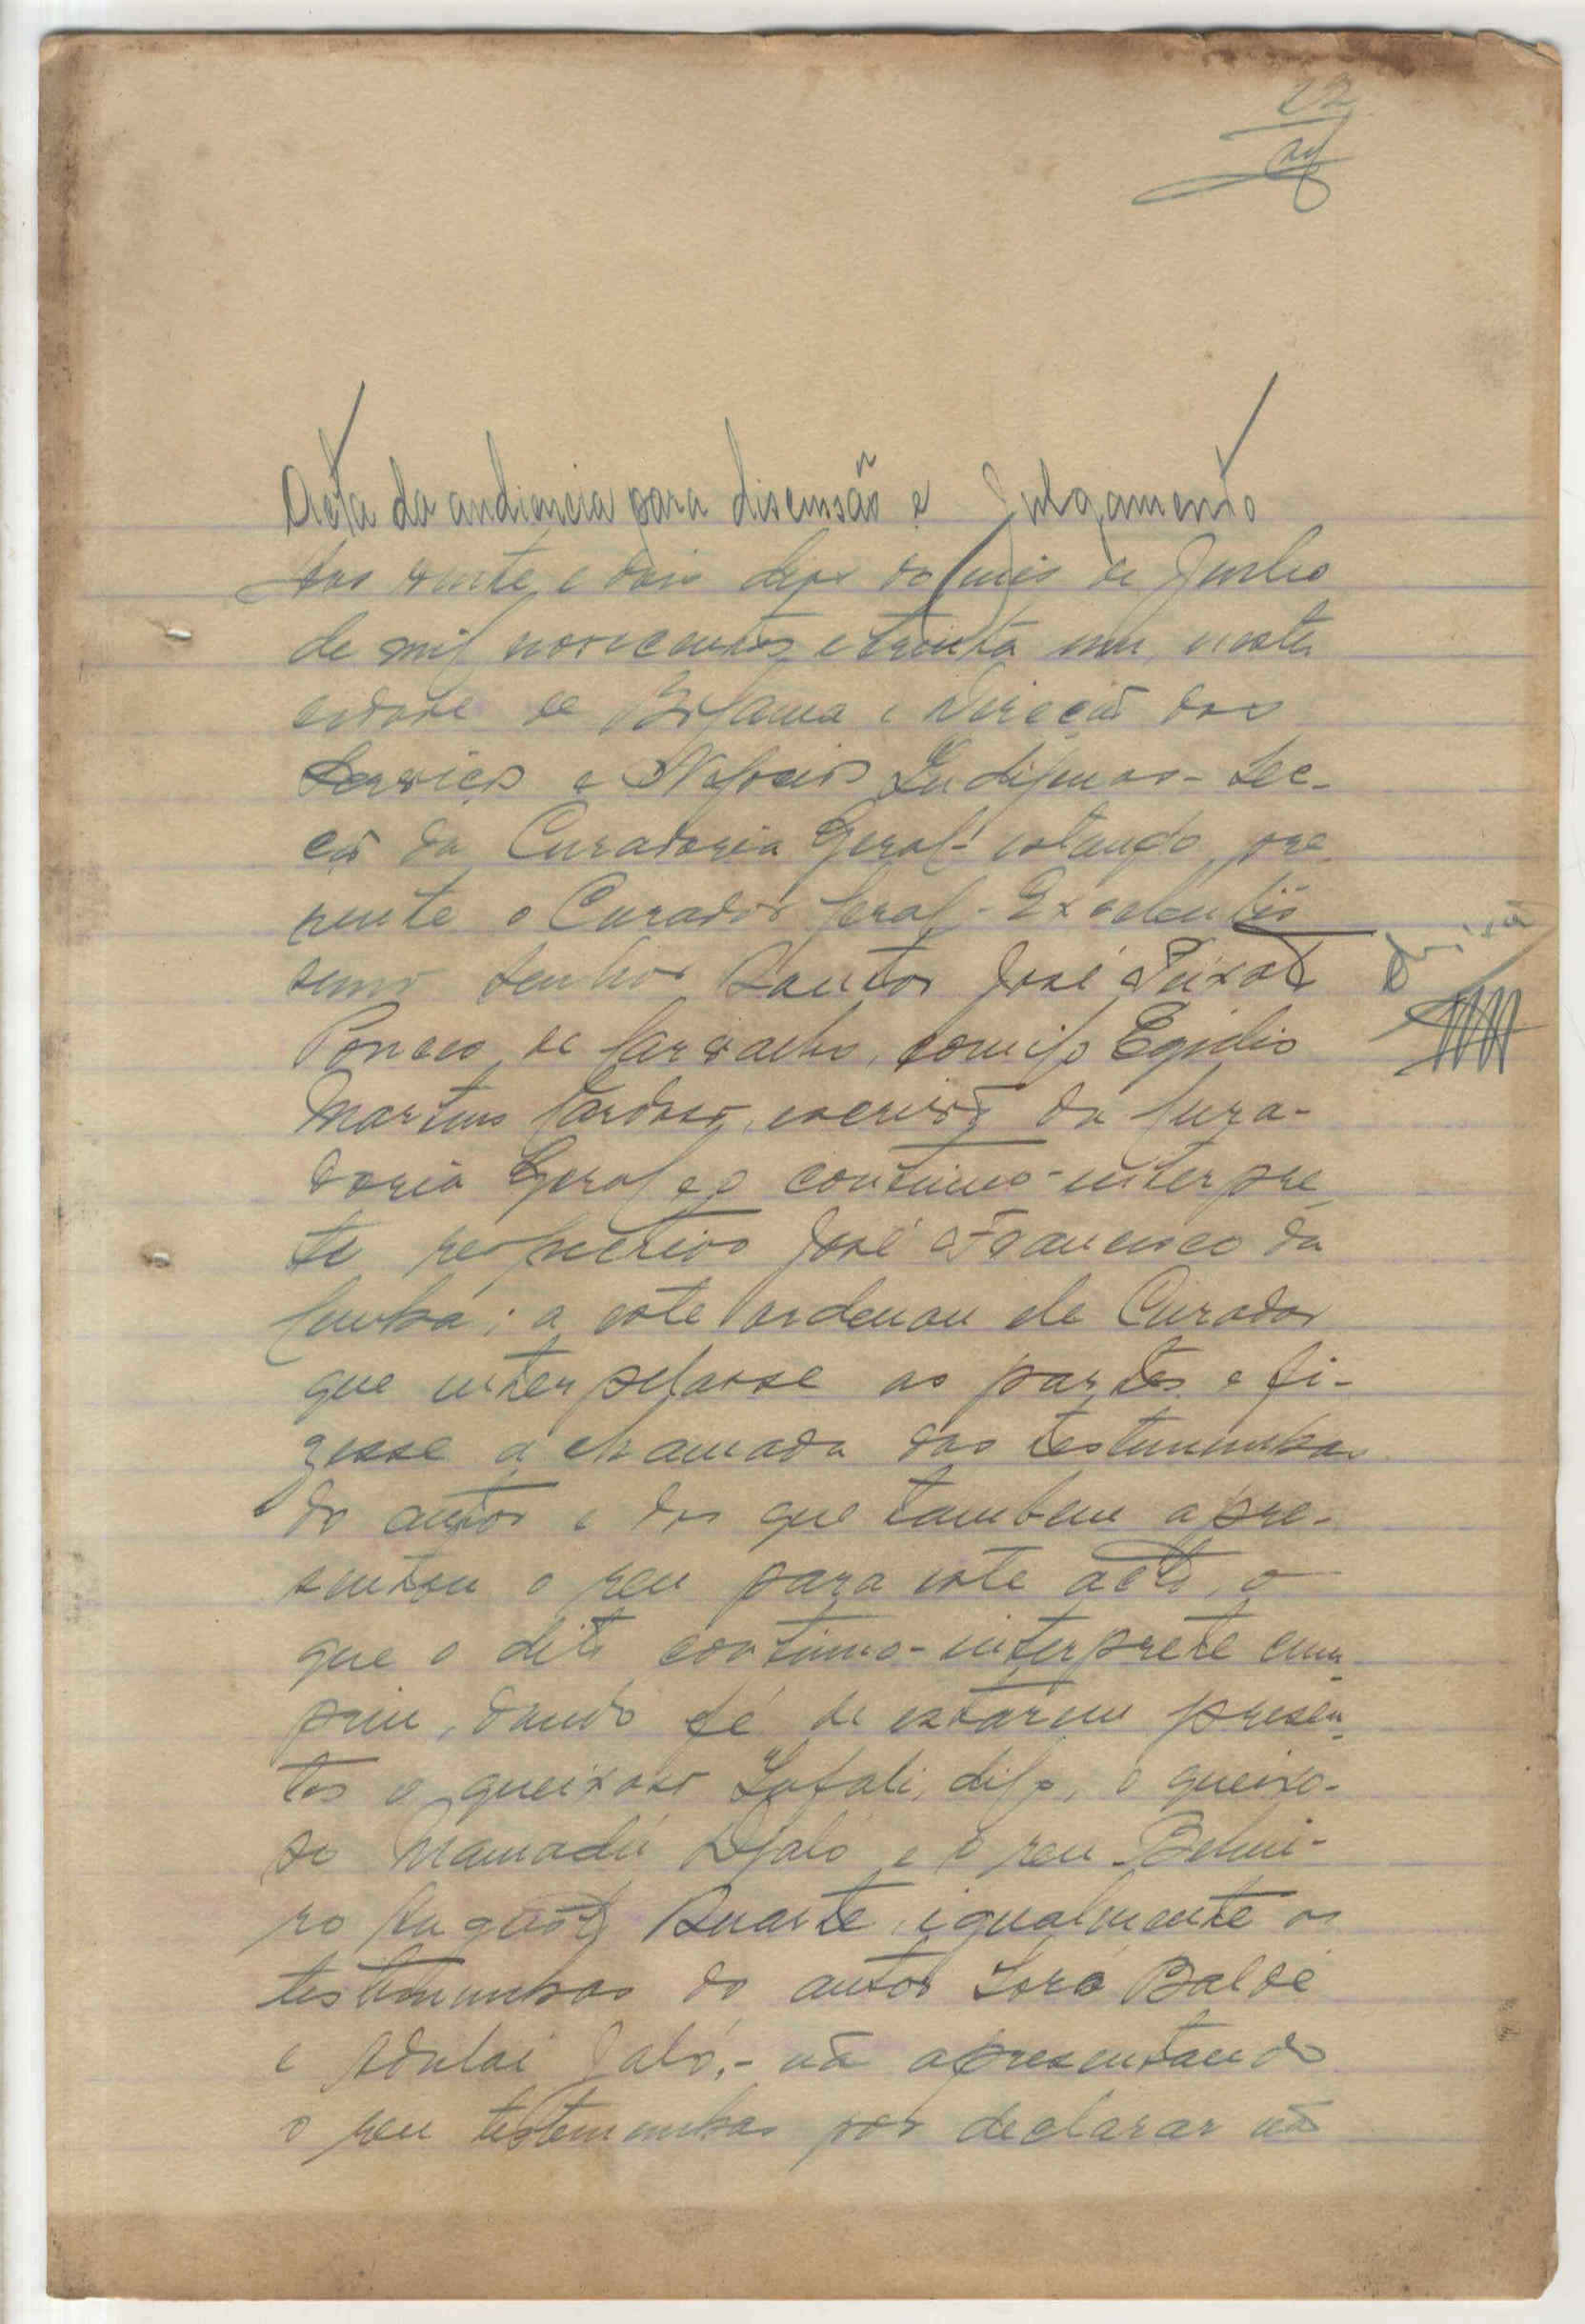 22
Acta da audiencia para discussão e Julgamento
Aos vinte e dois dias do mês de Junho
de mil novecentos e trinta um, nesta
cidade de Bolama e Direcção dos
Serviços e Negocios Indigenas - Sec-
ção da Curadoria Geral - estando pre
sente o Curador Geral - Excelentis
simo Senhor Doutor José Peixoto
Ponces de Carvalho, comigo Egidio
Martins Cardoso, escrivão da Cura-
doria Geral e o continuo-interpre
te respectivo José Francisco da
Cunha; a este ordenou ele Curador
que interpelasse as partes e fi-
zesse a chamada das testemunhas
do autor e das que tambem apre-
sentou o reu para este acto, o
que o dito continuo-interprete cum-
priu, dando fé de estarem presen-
tes o queixoso digo, o queixo-
so Mamadú Djaló e o reu Belmi-
ro Augusto Duarte, igualmente as
testemunhas do autor Soré Baldé
e Adulai Jaló, - não apresentando
o reu testemunhas por declarar não